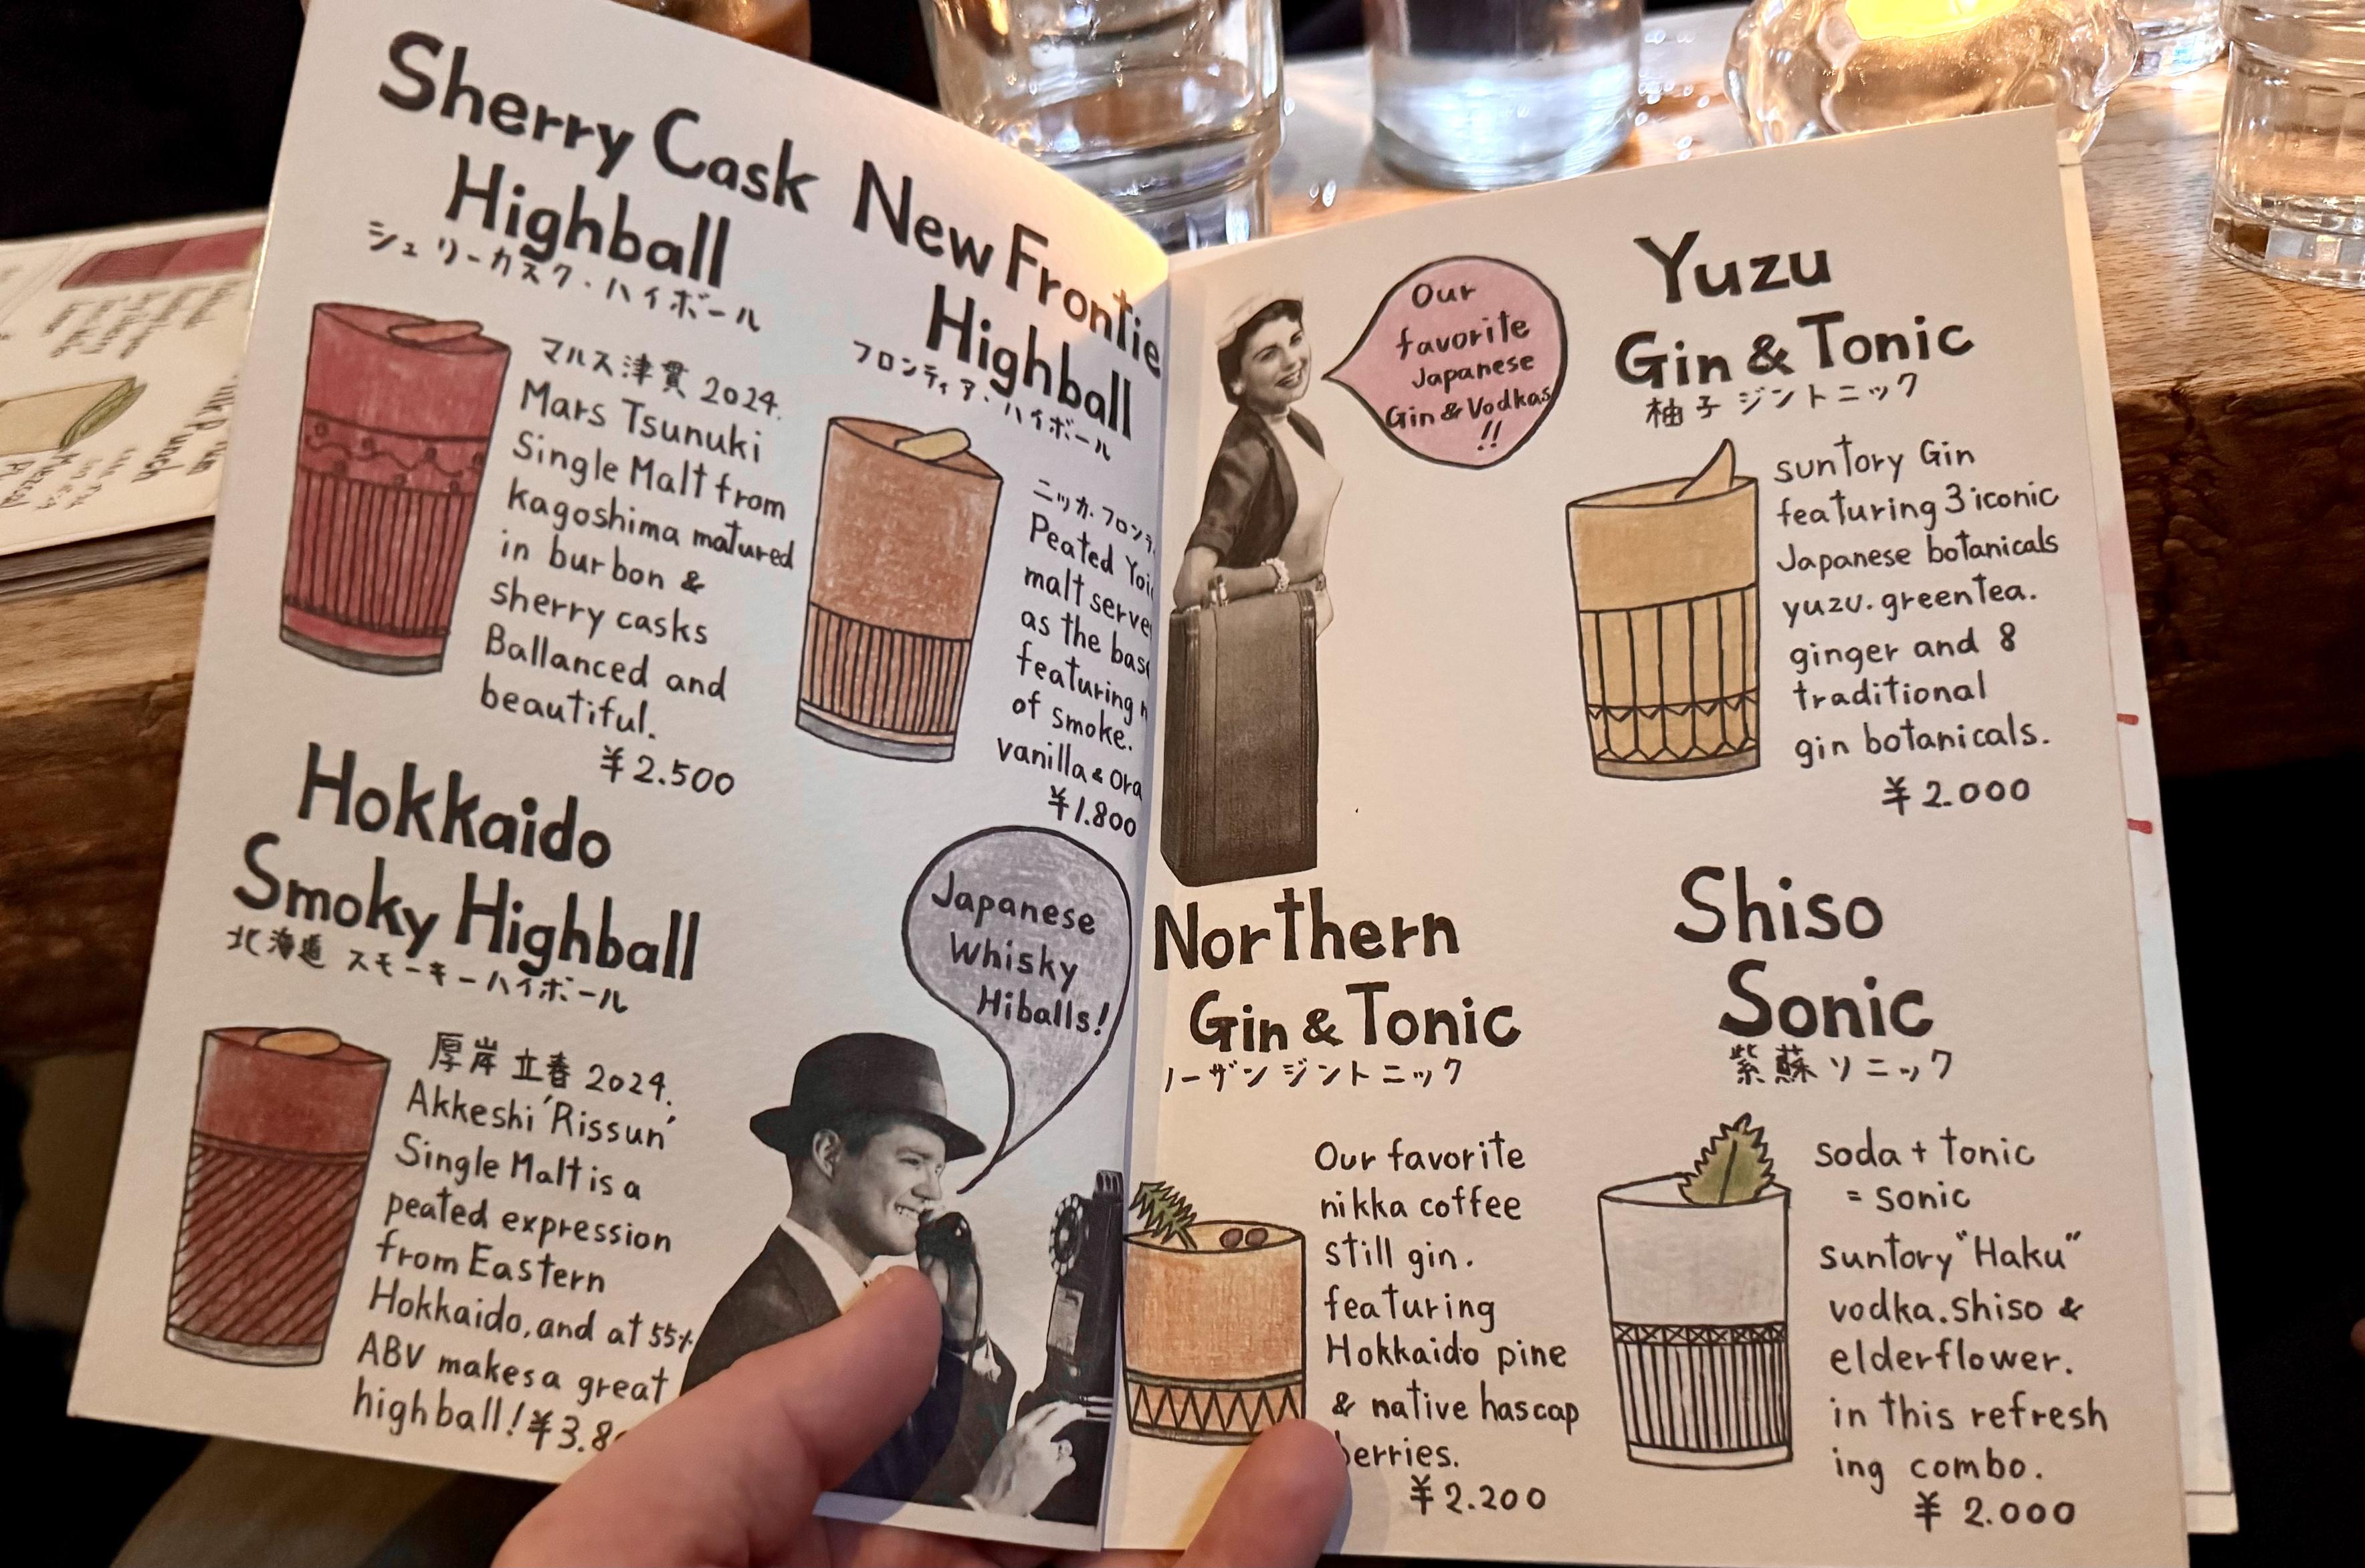 Sherry Cask
Highball
シェリーカスク・ハイボール
マルス津貫 2024.
Mars Tsunuki
Single Malt from
kagoshima matured
in burbon &
sherry casks
Ballanced and
beautiful.
¥2.500
New Frontie
Highball
フロンティア・ハイボール
ニッカ・フロンテ
Peated Yoi
malt serve
as the bas
featuring
of smoke.
vanilla & Ora
¥1.800
Hokkaido
Smoky Highball
北海道 スモーキーハイボール
厚岸 立春 2024.
Akkeshi 'Rissun'
Single Malt is a
peated expression
from Eastern
Hokkaido, and at 55%
ABV makes a great
highball! ¥3.8
Japanese
Whisky
Hiballs!
Our
favorite
Japanese
Gin & Vodkas
!!
Yuzu
Gin & Tonic
柚子 ジントニック
suntory Gin
featuring 3 iconic
Japanese botanicals
yuzu. greentea.
ginger and 8
traditional
gin botanicals.
¥2.000
Northern
Gin & Tonic
ノーザン ジントニック
Our favorite
nikka coffee
still gin.
featuring
Hokkaido pine
& native hascap
berries.
¥2.200
Shiso
Sonic
紫蘇 ソニック
soda + tonic
= sonic
suntory "Haku"
vodka. shiso &
elderflower.
in this refresh
ing combo.
¥2.000
Punch